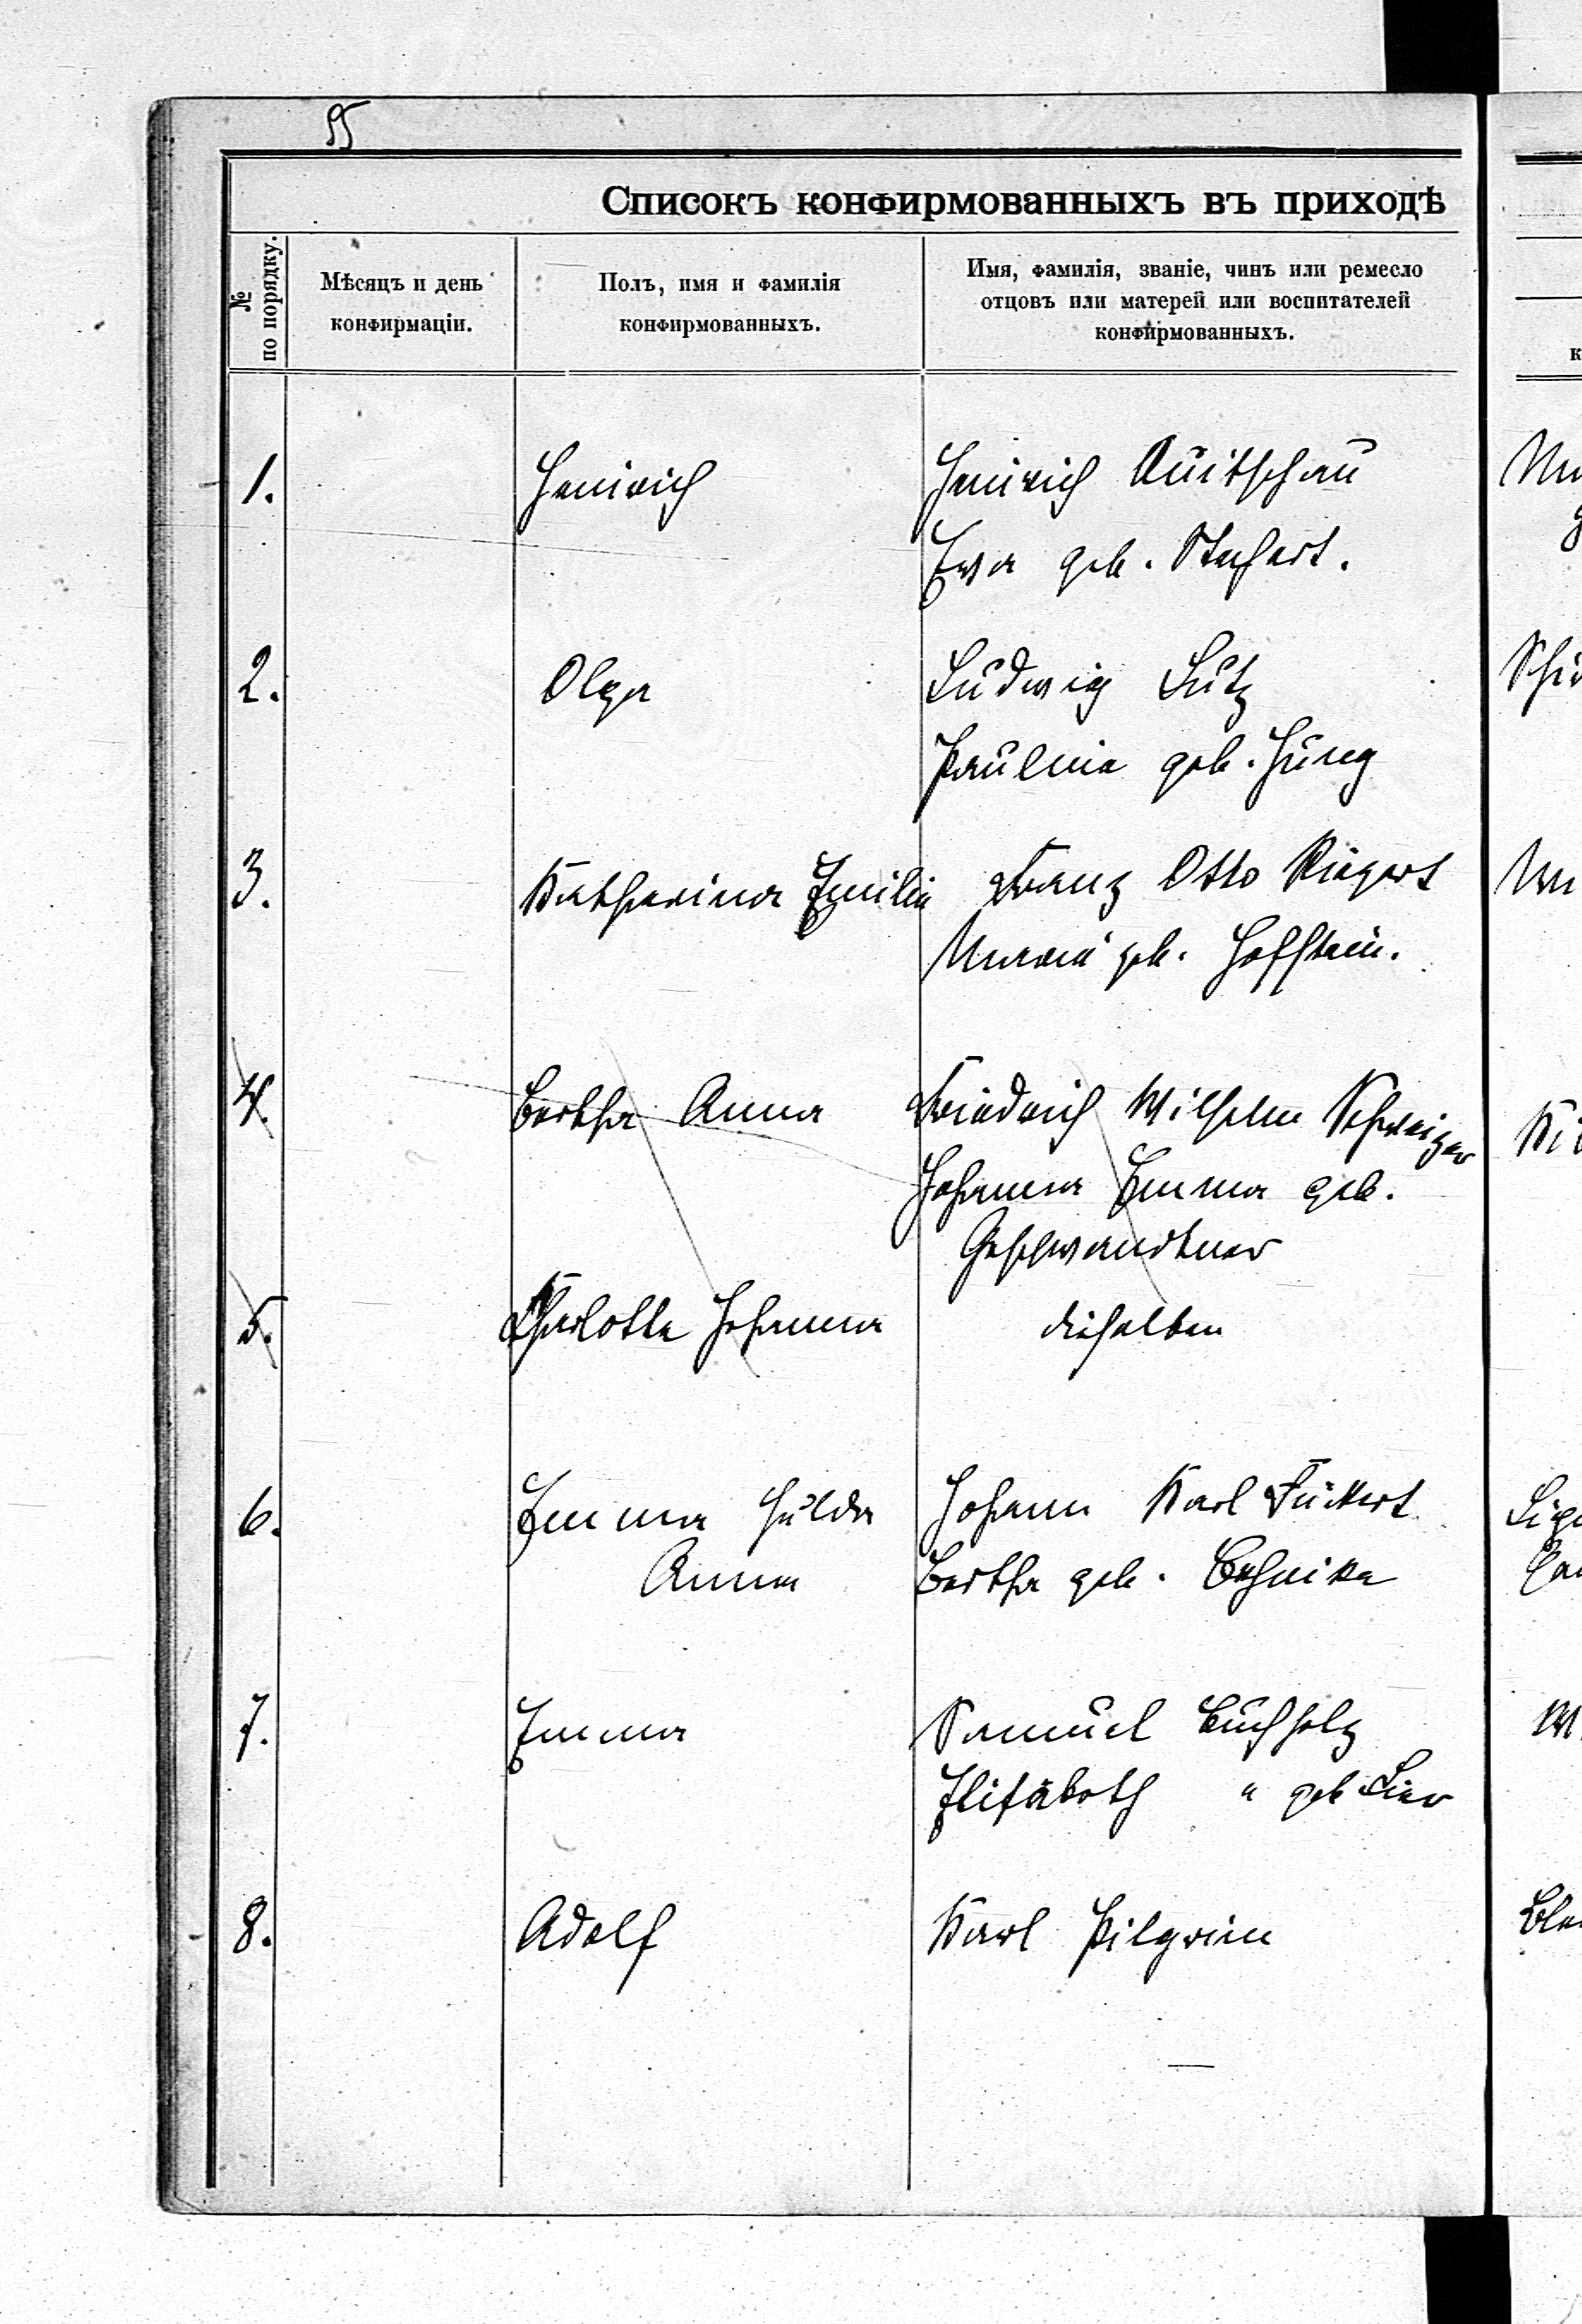 95
Списокъ конфирмованныхъ въ приходѣ
№ по порядку.
Мѣсяцъ и день
конфирмаціи.
Полъ, имя и фамилія
конфирмованныхъ.
Имя, фамилія, званіе, чинъ или ремесло
отцовъ или матерей или воспитателей
конфирмованныхъ.
1. Heinrich Heinrich Quitschau
Ewa geb.
2. Olga Ludwig Lutz
Pauline geb. Jung
3. Katharina Emilie Franz Otto Riegert
Maria geb. Hoffstein.
4. Bertha Anna Friedrich Wilhelm Schweizer
Johanna Emma geb.
Geschwandtner
5. Charlotte Johanna dieselben
6. Emma Hulda Johann Karl Fückert
Anna Bertha geb.
7. Emma Samuel Buchholz
Elisabeth " geb.
8. Adolf Karl Pilgrim